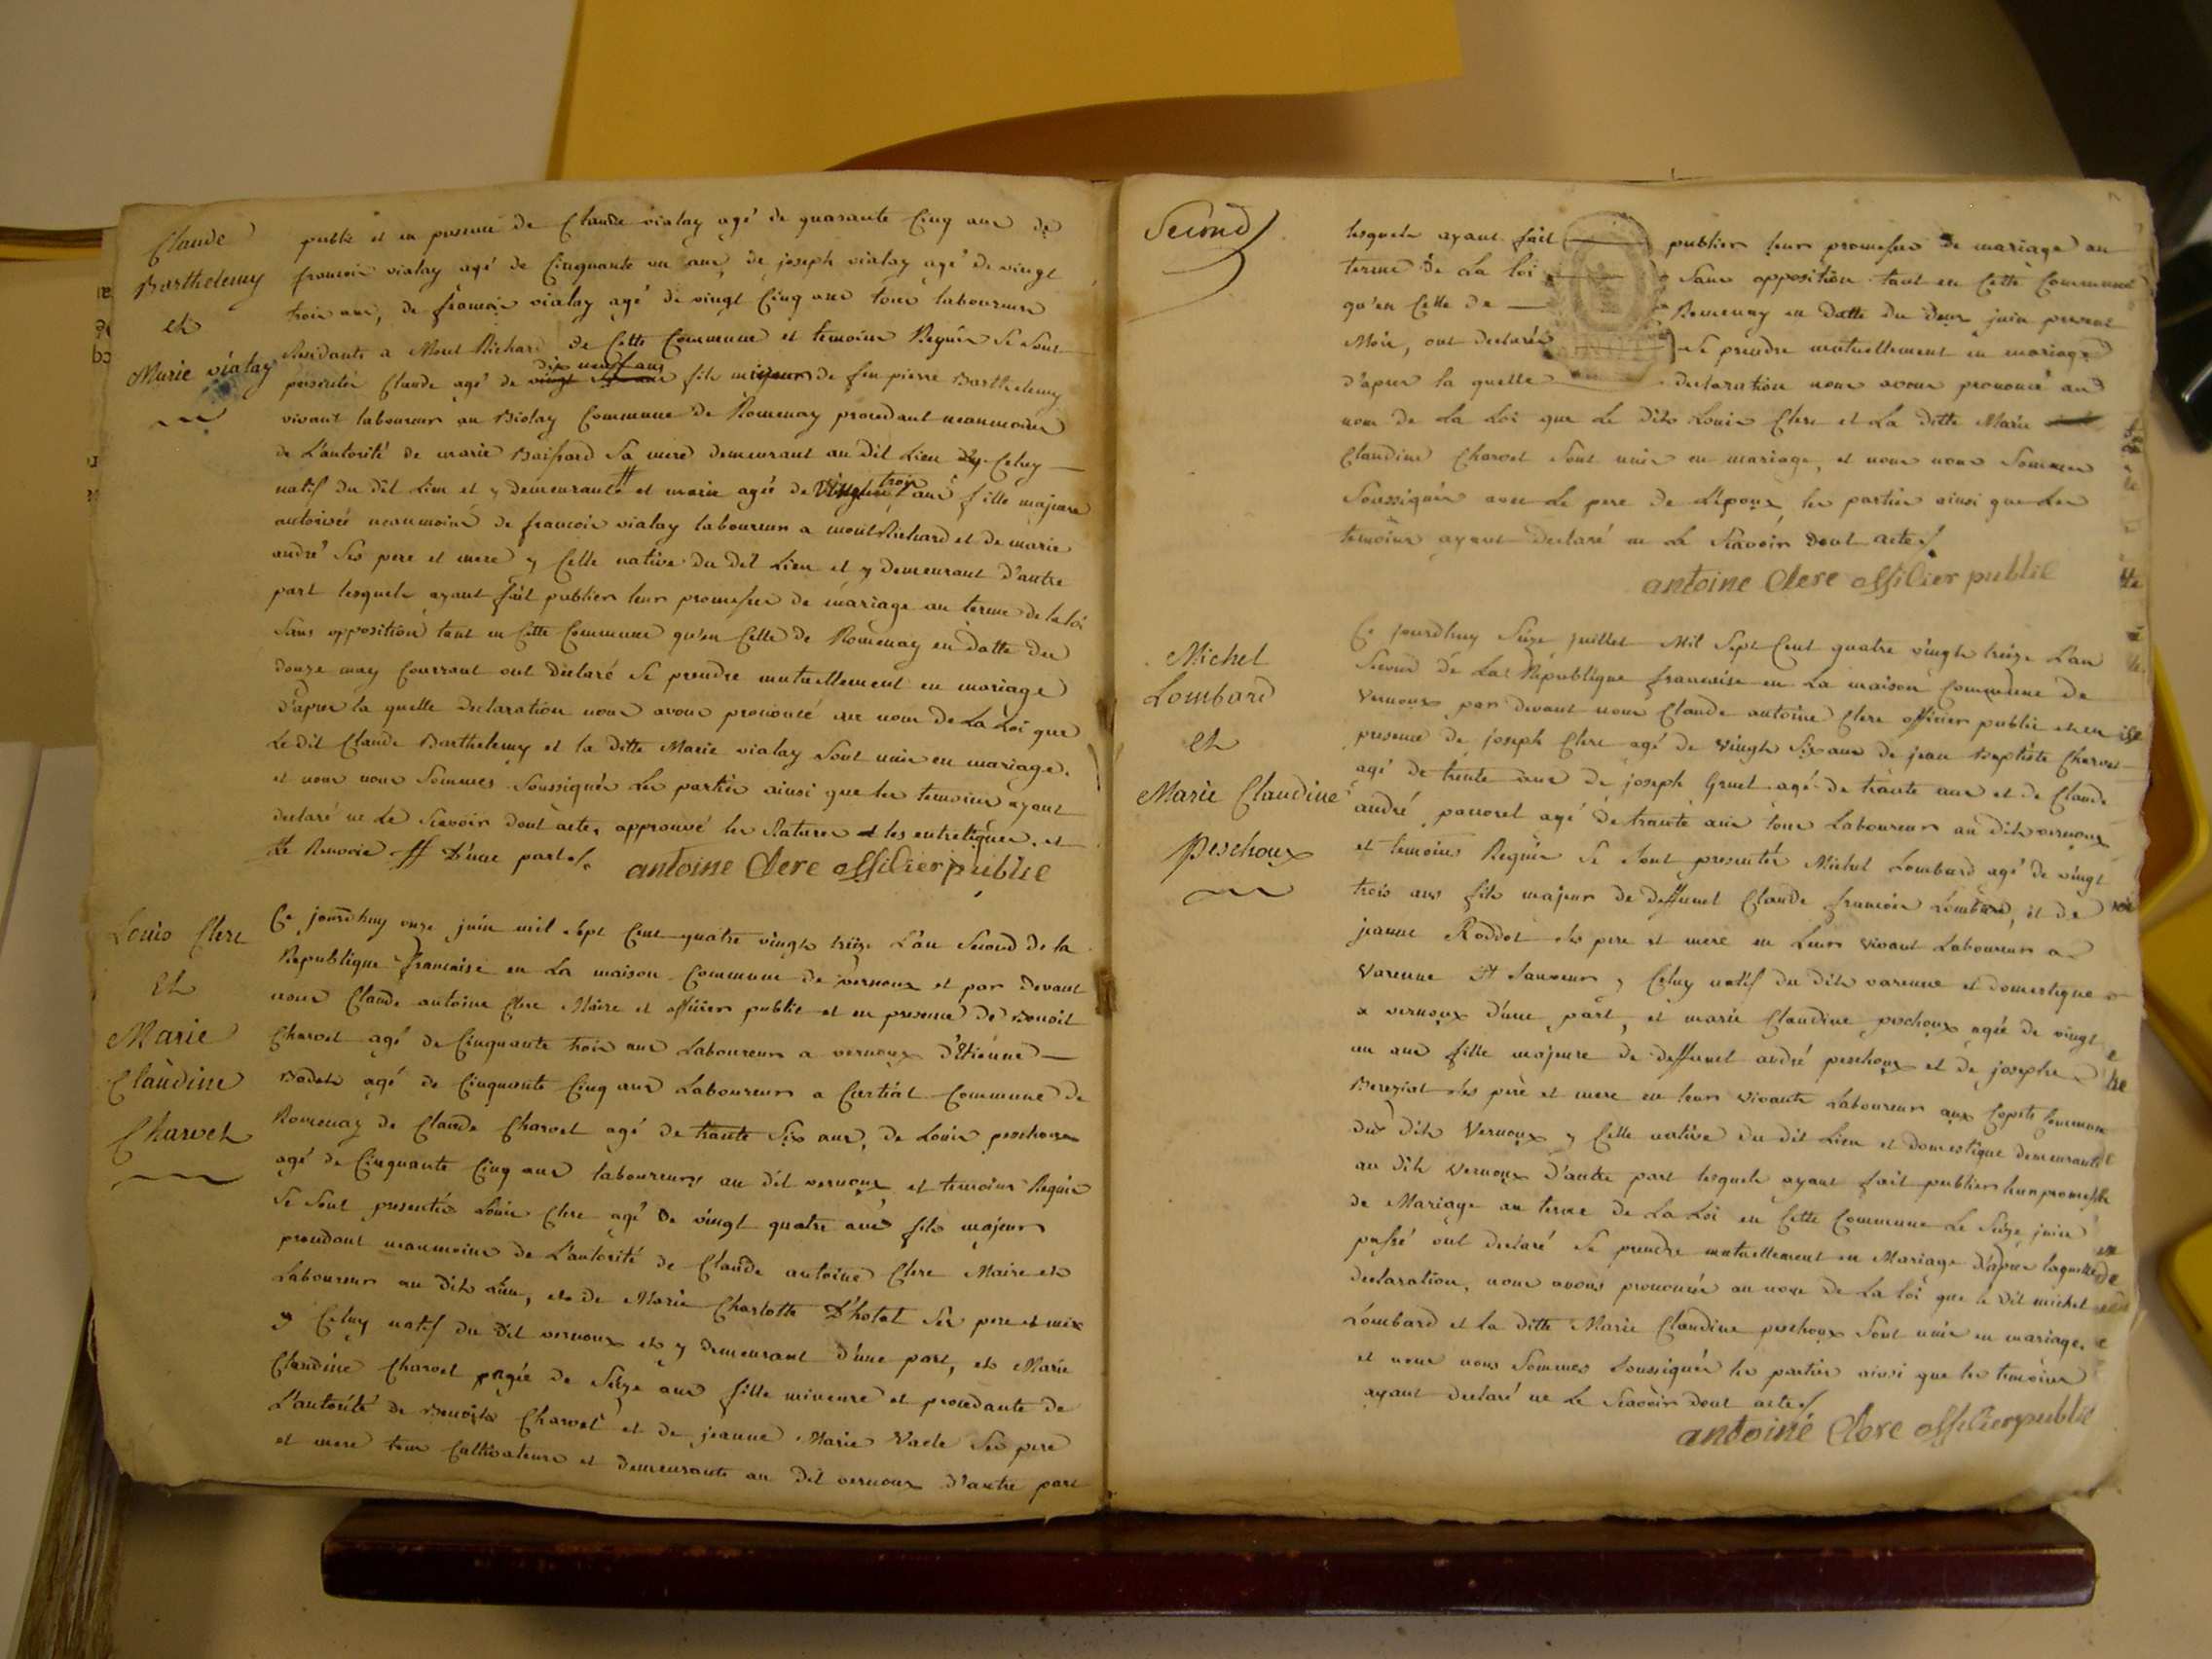 Claude
Barthelemy
et
Marie vialay
publie et en presence de Claude vialay agé de quarante Cinq ans de
francois vialay agé de Cinquante un ans, de joseph vialay agé de vingt
trois ans, de francois vialay agé de vingt Cinq ans tous laboureurs
Residants a Mont Richard de Cette Commune et temoins Requis Se Sont
presentés Claude agé de dix neuf ans fils mineur de feu pierre Barthelemy
vivant laboureur au Biolay Commune de Romenay procedant neanmoins
de L'autorité de marie Sa mere demeurant au dit Lieu Celuy
natif du dit Lieu et y demeurante # et marie agée de vingt trois ans fille majeure
autorisée neanmoins de francois vialay laboureur a mont Richard et de marie
andré Ses pere et mere y Celle native du dit Lieu et y demeurant d'autre
part lesquels ayant fait publier leur promesses de mariage au terme de la loi
Sans opposition tant en Cette Commune qu'en Celle de Romenay en datte du
douze may Courrant ont declaré Se prendre mutuellement en mariage
d'apres la quelle declaration nous avons prononcé au nom de La Loi que
Le dit Claude Barthelemy et la ditte Marie vialay Sont unis en mariage.
et nous nous Sommes Soussignés Les parties ainsi que les temoins ayant
declaré ne Le Scavoir dont acte, approuvé les Ratures et les entreligues, et
Le Renvoie # D'une part.
antoine Clere officier publie
Louis Clere
Et
Marie
Claudine
Charvet
Ce jourdhuy onze juin mil Sept Cent quatre vingts treize L'an Second de la
Republique francaise en La maison Commune de vernoux et par devant
nous Claude antoine Clere Maire et officier public et en presence de Benoit
Charvet agé de Cinquante trois ans Laboureur a vernoux d'Etienne
Badet agé de Cinquante Cinq ans Laboureur a Curtiat Commune de
Romenay de Claude Charvet agé de trante Six ans, de Louis peschoux
agé de Cinquante Cinq ans laboureurs au dit vernoux et temoins Requis
Se Sont presentés Louis Clere agé de vingt quatre ans fils majeur
procedant neanmoins de L'autorité de Claude antoine Clere Maire et
Laboureur au dit Lieu, et de Marie Charlotte D'hotel Ses pere et mere
y Celuy natif du Dit vernoux et y demeurant d'une part, et Marie
Claudine Charvet agée de Seize ans fille mineure et procedante de
L'autorité de Benoit Charvet et de jeanne Marie Vacle Ses pere
et mere tous Cultivateurs et demeurants au dit vernoux d'autre part
Second
lesquels ayant fait publier leur promesses de mariage au
terme de La loi Sans opposition tant en Cette Commune
qu'en Celle de Romenay en datte du deux juin present
Mois, ont declarés Se prendre mutuellement en mariage
d'apres la quelle declaration nous avons prononcé au
nom de La Loi que Le dit Louis Clere et La ditte Marie
Claudine Charvet Sont unis en mariage, et nous nous Sommes
Soussignés avec Le pere de L'époux les parties ainsi que Les
temoins ayant declaré ne Le Scavoir dont acte.
antoine Clere officier publie
Michel
Lombard
Et
Marie Claudine
peschoux
Ce jourdhuy Seize juillet Mil Sept Cent quatre vingts treize L'an
Second de La République francaise en La maison Commune de
Vernoux par devant nous Claude antoine Clere officier public et en
presence de joseph Clere agé de vingts Six ans de jean Baptiste Charvet
agé de trente ans de joseph Gruel agé de trante ans et de Claude
andré agé de trante ans tous Laboureurs au dit vernoux
et temoins Requis Se Sont presentés Michel Lombard agé de vingt
trois ans fils majeur de deffunct Claude francois Lombard, et de
jeanne Roddet Ses pere et mere en Leurs vivant Laboureur a
Varenne St Sauveur, Celuy natif du dit varenne et domestique
a vernoux d'une part, et marie Claudine peschoux agée de vingt
un ans fille majeure de deffunct andré peschoux et de josephe
Bereziat Ses pere et mere en leurs vivants Laboureur aux Copets Commune
du dit Vernoux y Celle native du dit Lieu et domestique demeurante
au dit vernoux D'autre part lesquels ayant fait publier leur promesse
de Mariage au terme de La Loi en Cette Commune Le Seize juin
passé ont declaré Se prendre mutuellement en Mariage d'apres laquelle
declaration, nous avons prononcés au nom de La loi que le dit michel
Lombard et la ditte Marie Claudine peschoux Sont unis en mariage.
et nous nous Sommes Soussignés les parties ainsi que les temoins
ayant declaré ne Le Scavoir dont acte.
antoine Clere officier publie